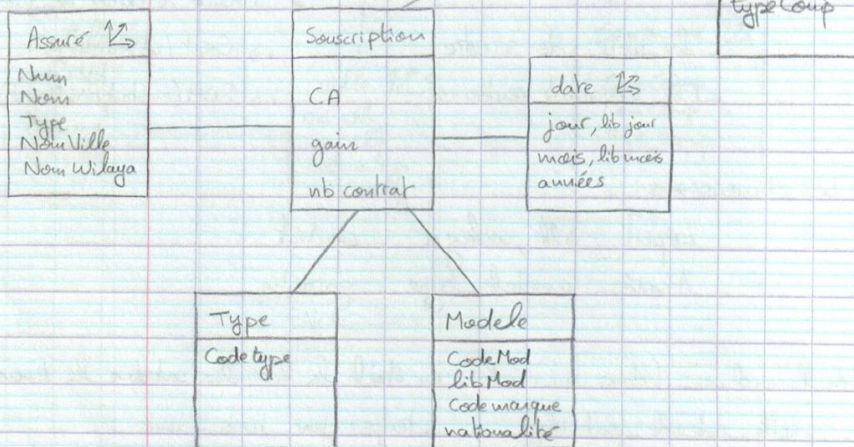 typeCoup
Assuré
Num
Nom
Type
NomVille
NomWilaya
Souscription
CA
gain
nb contrat
date
jour, lib jour
mois, lib mois
années
Type
Code type
Modele
CodeMod
libMod
Code marque
nationalité